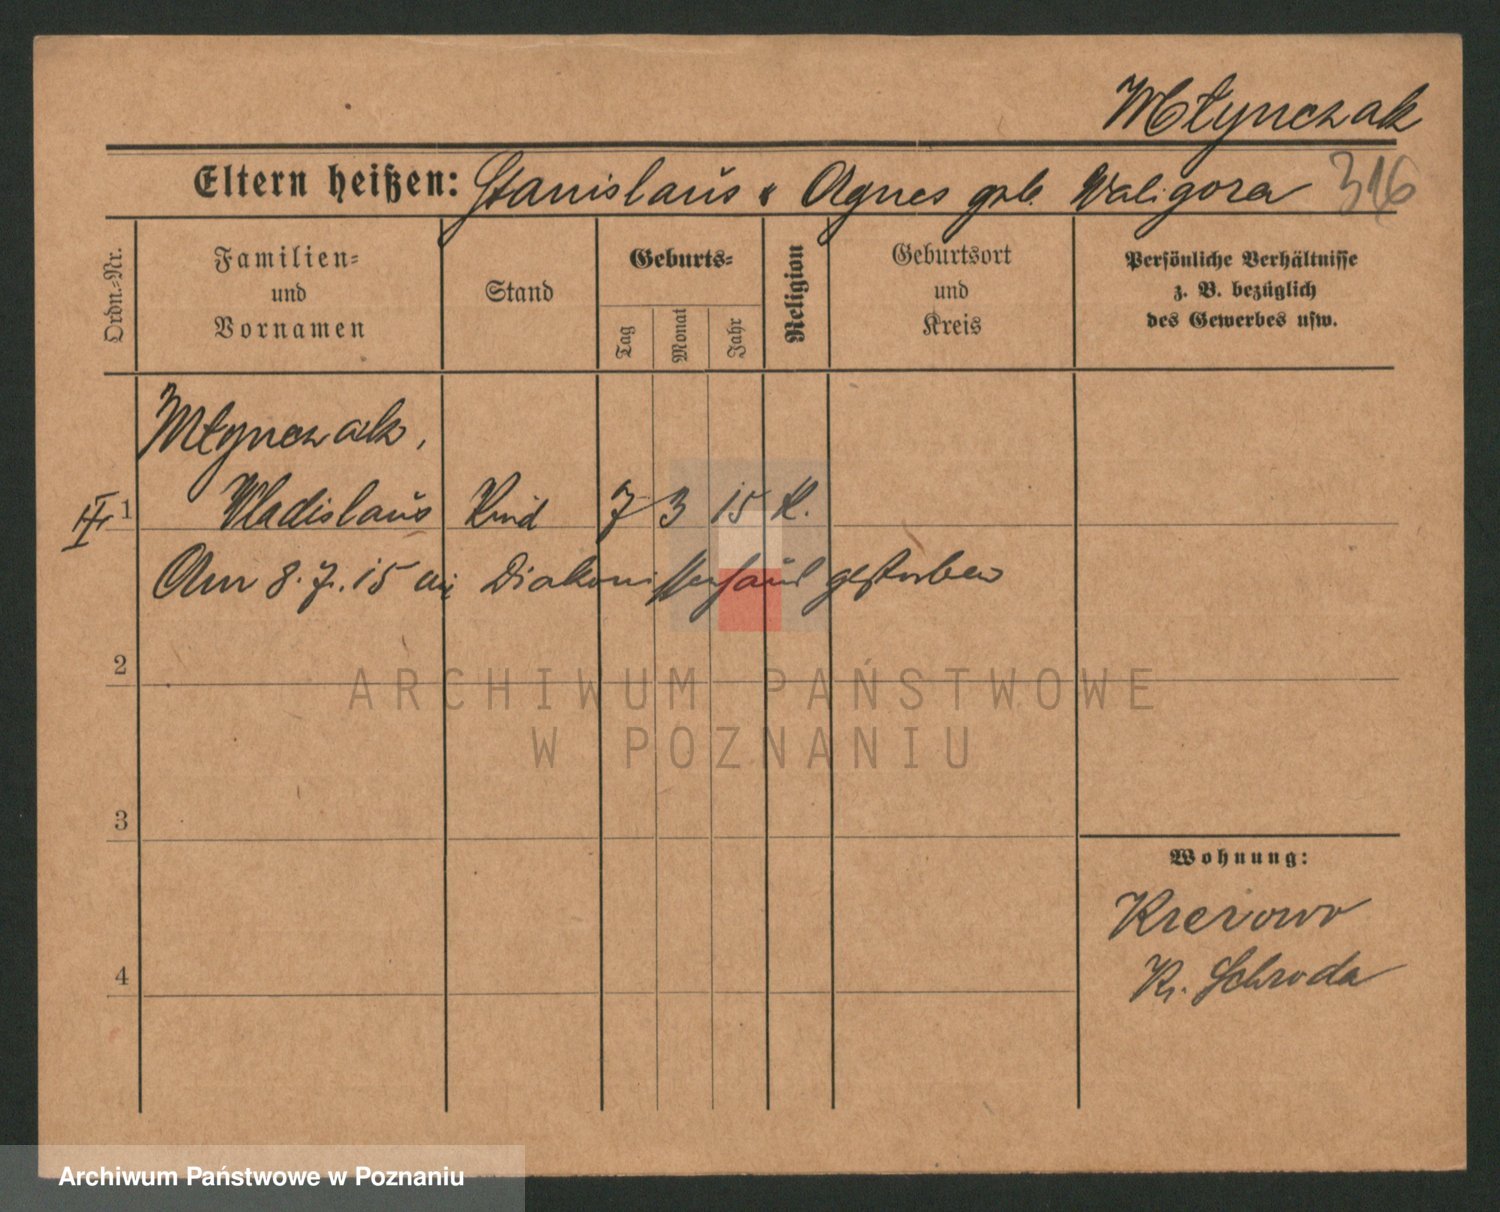 Młynczak
Eltern heißen: Stanislaus & Agnes geb. Waligora 316
Ordn.-Nr.
Familien-
und
Vornamen
Stand
Geburts-
Tag
Monat
Jahr
Religion
Geburtsort
und
Kreis
Persönliche Verhältnisse
z. B. bezüglich
des Gewerbes usw.
Młynczak,
1 Wladislaus Kind 7 3 15 K.
Am 8.7.15 im Diakonissenhaus gestorben
2
3
4
Wohnung:
Krerowo
Kr. Schroda
ARCHIWUM PAŃSTWOWE
W POZNANIU
Archiwum Państwowe w Poznaniu